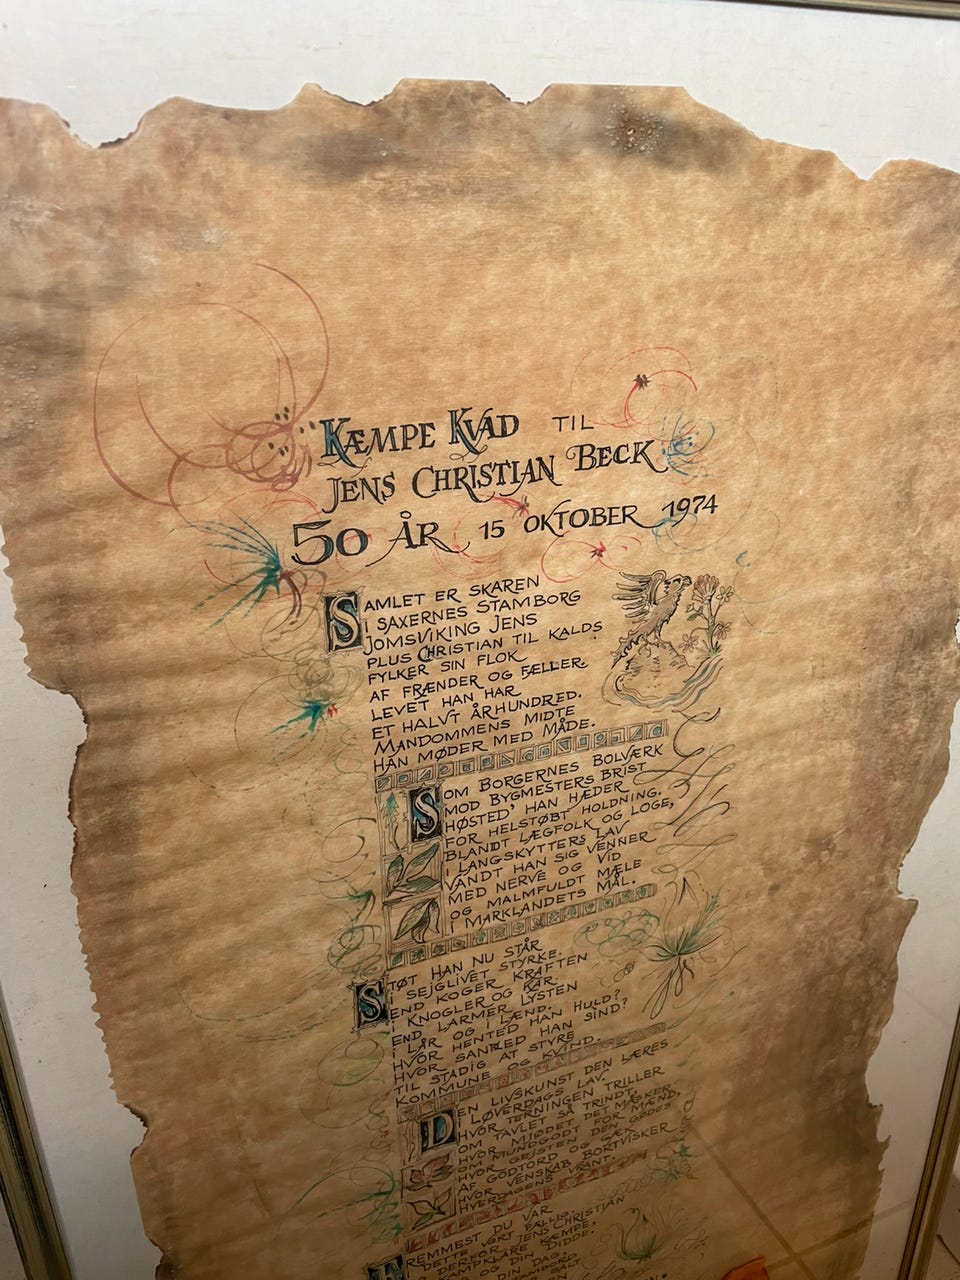 KÆMPE KVAD TIL
JENS CHRISTIAN BECK
50 ÅR 15 OKTOBER 1974
SAMLET ER SKAREN
I SAXERNES STAMBORG
JOMSVIKING JENS
PLUS CHRISTIAN TIL KALDS
FYLKER SIN FLOK
AF FRÆNDER OG FÆLLER.
LEVET HAN HAR
ET HALVT ÅRHUNDRED.
MANDOMMENS MIDTE
HAN MØDER MED MÅDE.
SOM BORGERNES BOLVÆRK
MOD BYGMESTERS BRIST
HØSTED' HAN HÆDER
FOR HELSTØBT HOLDNING.
BLANDT LÆGFOLK OG LOGE,
I LANGSKYTTERS LAV
VANDT HAN SIG VENNER
MED NERVE OG VID
OG MALMFULDT MÆLE
I MARKLANDETS MÅL.
STØT HAN NU STÅR
I SEJGLIVET STYRKE.
END KOGER KRAFTEN
I KNOGLER OG KAR.
END LARMER LYSTEN
I LÅR OG I LÆND.
HVOR HENTED HAN HULD?
HVOR SANKED HAN SIND?
TIL STADIG AT STYRE
KOMMUNE OG KVIND.
DEN LIVSKUNST DEN LÆRES
I LØVERDAGS LAV.
HVOR TERNINGEN TRILLER
OM TAVLET SÅ TRINDT,
HVOR MJØDET DET MÆSKER
OM MUNDGODT FOR MÆND,
HVOR GEJSTEN DEN GØDES
AF GODTORD OG GÆK
HVOR VENSKAB BORTVISKER
HVERDAGENS VRANT.
FREMMEST DU VAR
I DETTE VORT FÆLLIG.
DERFOR JENS CHRISTIAN
KAMPKLARE KÆMPE,
OG DIN DIDDE.
DIN DAG